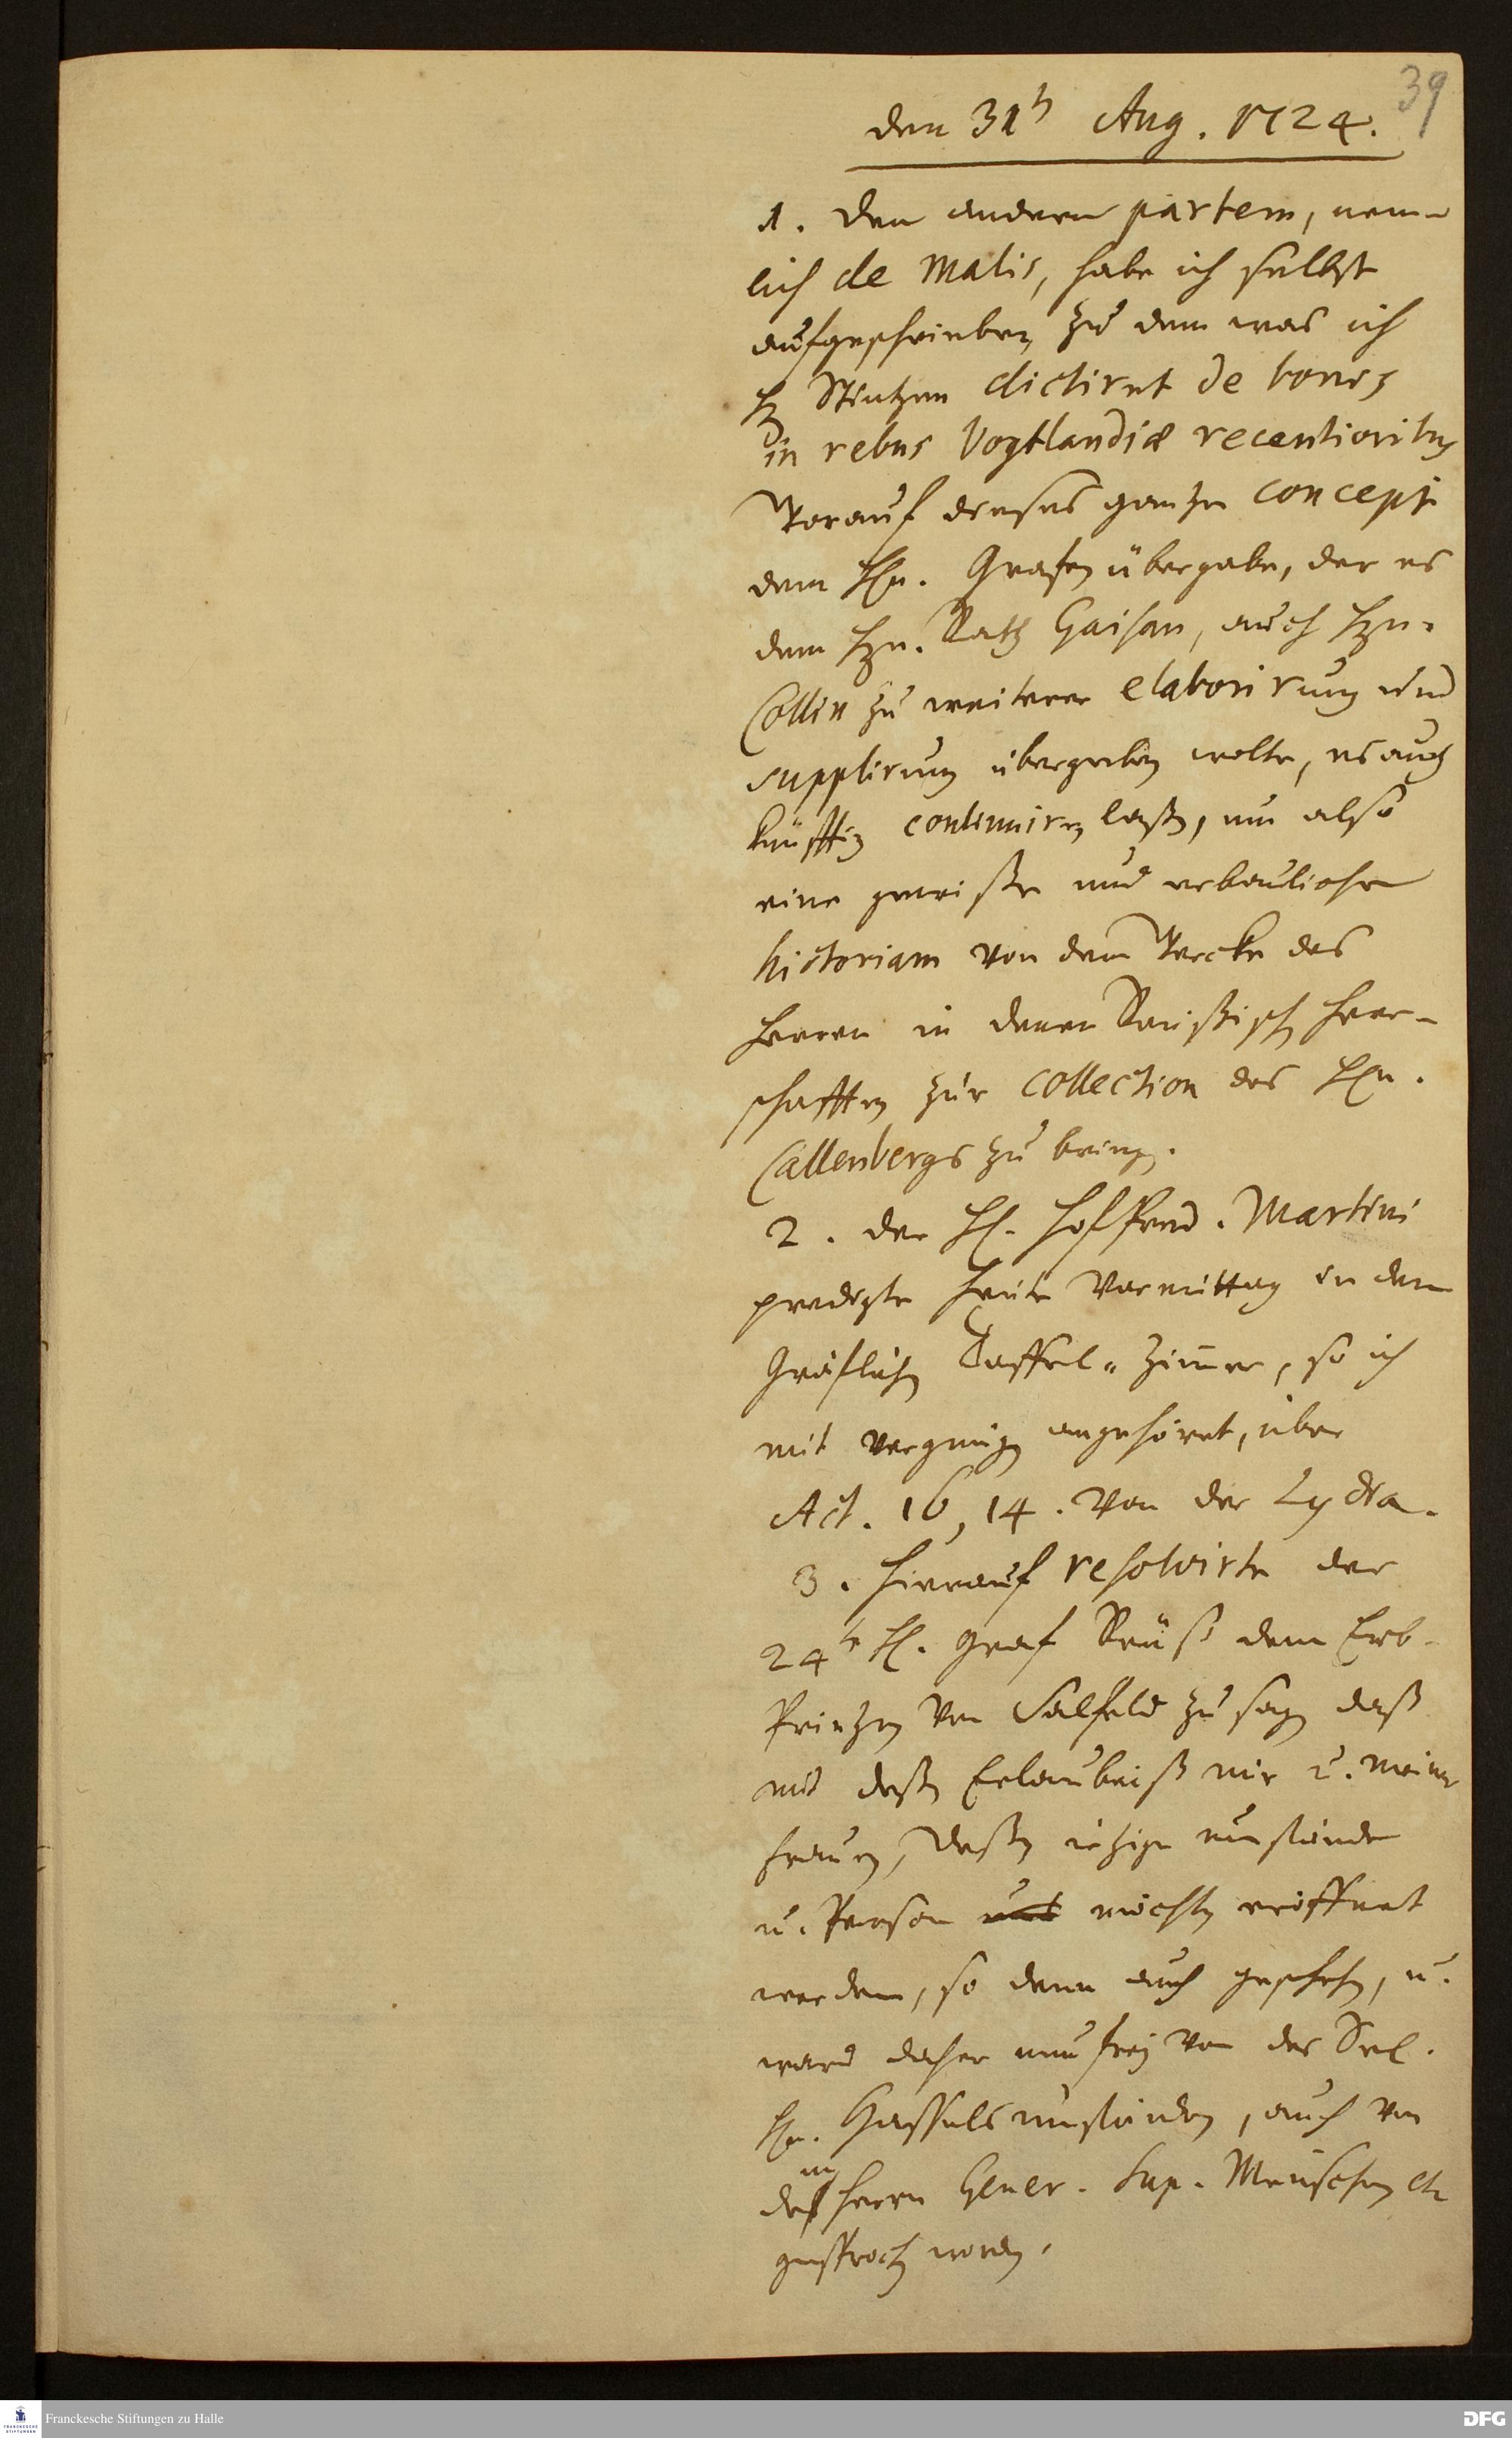 39
den 31t Aug. 1724.
1. Den andern partem, nem-
lich de malis, habe ich selbst
aufgeschrieben zu dem was ich
H. Stintzen dictiret de bonis
in rebus Vogtlandiæ recentioribus
Worauf dieses gantze concept
dem Hn. Grafen übergabe, der es
dem Hrn. Rath Gaisan, auch Hrn.
Collin zu weiterer elaborirung und
supplirung übergeben wolte, es auch
künfftig continuiren laßen, um also
eine gewiße und erbauliche
historiam von dem Wercke des
Herren in denen Reußisch Herr-
schafften zur collection des Hn.
Callenbergs zu bringen.
2. der H. HofPred. Martini
predigte heute Vormittag in dem
Gräflichen Taffel-Zimmer, so ich
mit Vergnügen angehöret, über
Act. 16, 14. Von der Lydia.
3. Hierauf resolvirte der
24te H. Graf Reuß dem Erb-
Printzen von Salfeld zu sagen daß
mit deßen Erlaubniß mir u. meiner
Frauen, deßen ietzige umstände
u. Person möchten eröffnet
werden, so denn auch geschehen, u.
ward daher nun frey von des Sel.
Hn. Hassels umständen, auch von
dem Herrn Gener. Sup. Meuschen etc
gesprochen worden.
Franckesche Stiftungen zu Halle
DFG